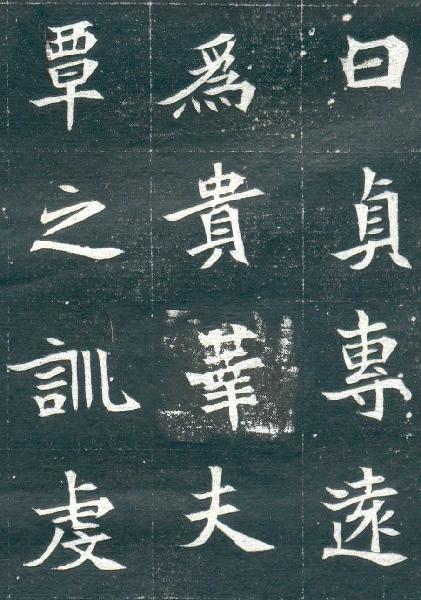 曰貞專遠
爲貴華夫
覃之訓虔